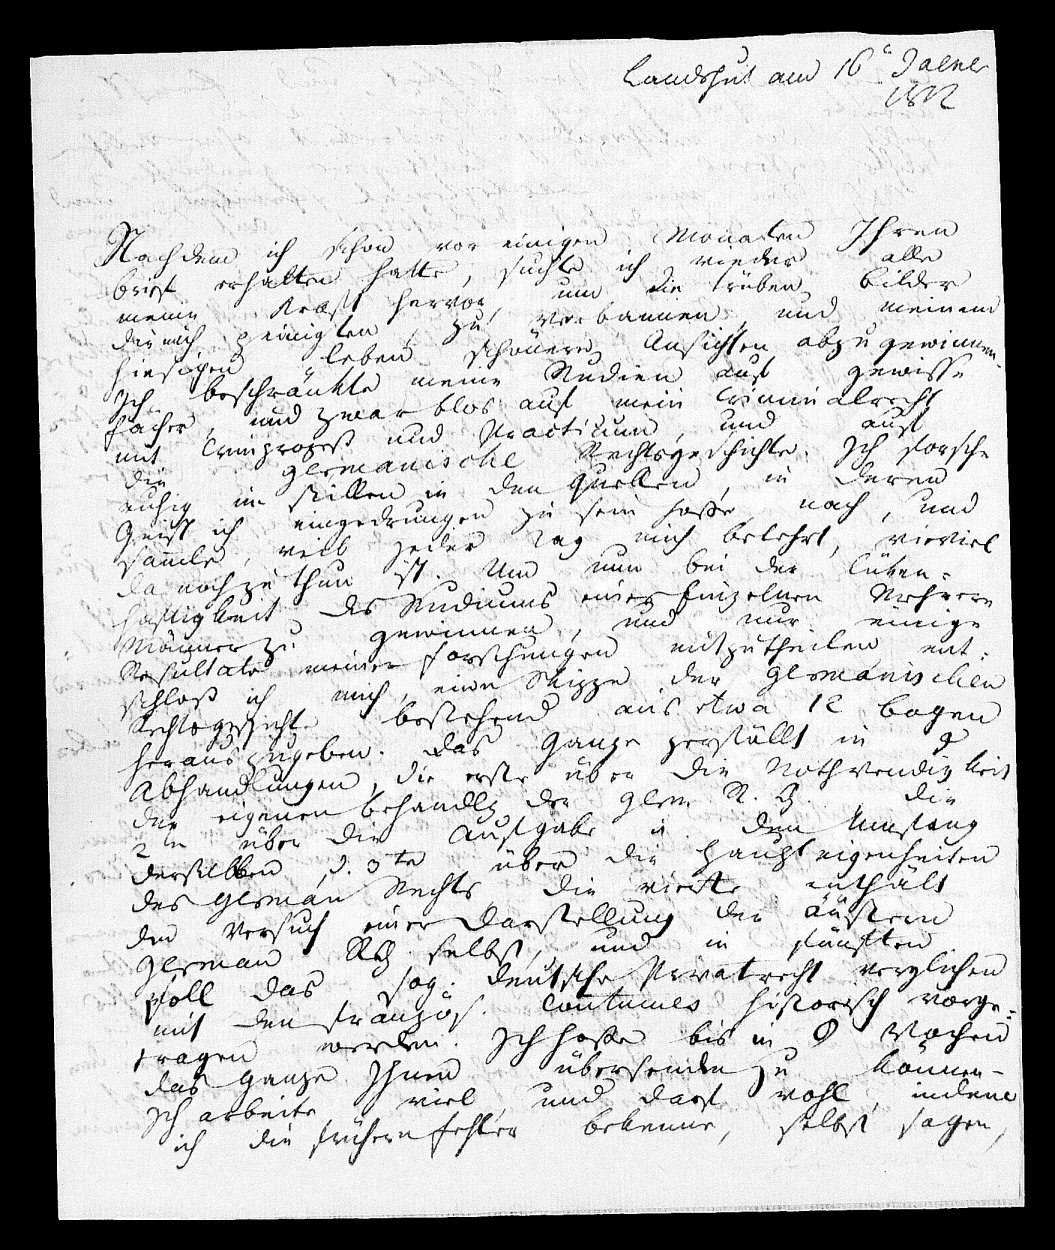 Landshut am 16n Jaener
1812
Nachdem ich schon vor einigen Monaten Ihren
brief erhalten hatte, suchte ich wieder alle
meine Kraft hervor, um die trüben bilder
die mich peinigten, zu verbannen, und meinem
hiesigen leben schönere Ansichten abzugewinnen.
Ich beschränkte meine Studien auf gewisse
fächer, und zwar blos auf mein Criminalrecht
mit Crimprozeß und Practicum, und auf
die germanische Rechtsgeschichte. Ich forsche
ruhig im stillen in den Quellen, in deren
Geist ich eingedrungen zu sein hoffe nach, und
samle, weil jeder Tag mich belehrt, wieviel
da noch zu thun ist. Um nun bei der lüken-
haftigkeit des Studiums eines Einzelnen Mehrere
Männer zu gewinnen, und nur einige
Resultate meiner forschungen mitzutheilen ent-
schloß ich mich, eine Skizze der germanischen
Rechtsgeschichte bestehend aus etwa 12 bogen
herauszugeben. das Ganze zerfällt in
Abhandlungen, die erste über die Nothwendigkeit
der eigenen behandlg der germ R. G. die
2te über die Aufgabe u. den Umfang
derselben, d. 3te über die haupteigenheiten
des german Rechts die vierte enthält
den Versuch einer darstellung der äussern
german RG selbst, und in fünften
soll das sog. deutsche Privatrecht verglichen
mit den französ. Coutumes historisch vorge-
tragen werden. Ich hoffe bis in 8 Wochen
das Ganze Ihnen übersenden zu können-
Ich arbeite viel, und darf wohl, indem
ich die frühern fehler bekenne, selbst sagen,